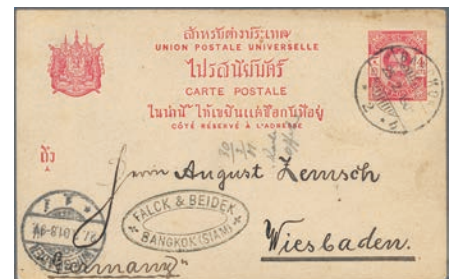 สำหรับต่างประเทศ
UNION POSTALE UNIVERSELLE
ไปรสนียบัตร์
CARTE POSTALE
ในน่านี้ ให้เขียนแต่ชื่อกับที่อยู่
CÔTÉ RÉSERVÉ À L'ADRESSE
ถึง
Herrn August Lemsch
FALCK & BEIDEK
BANGKOK (SIAM)
Wiesbaden.
Germany